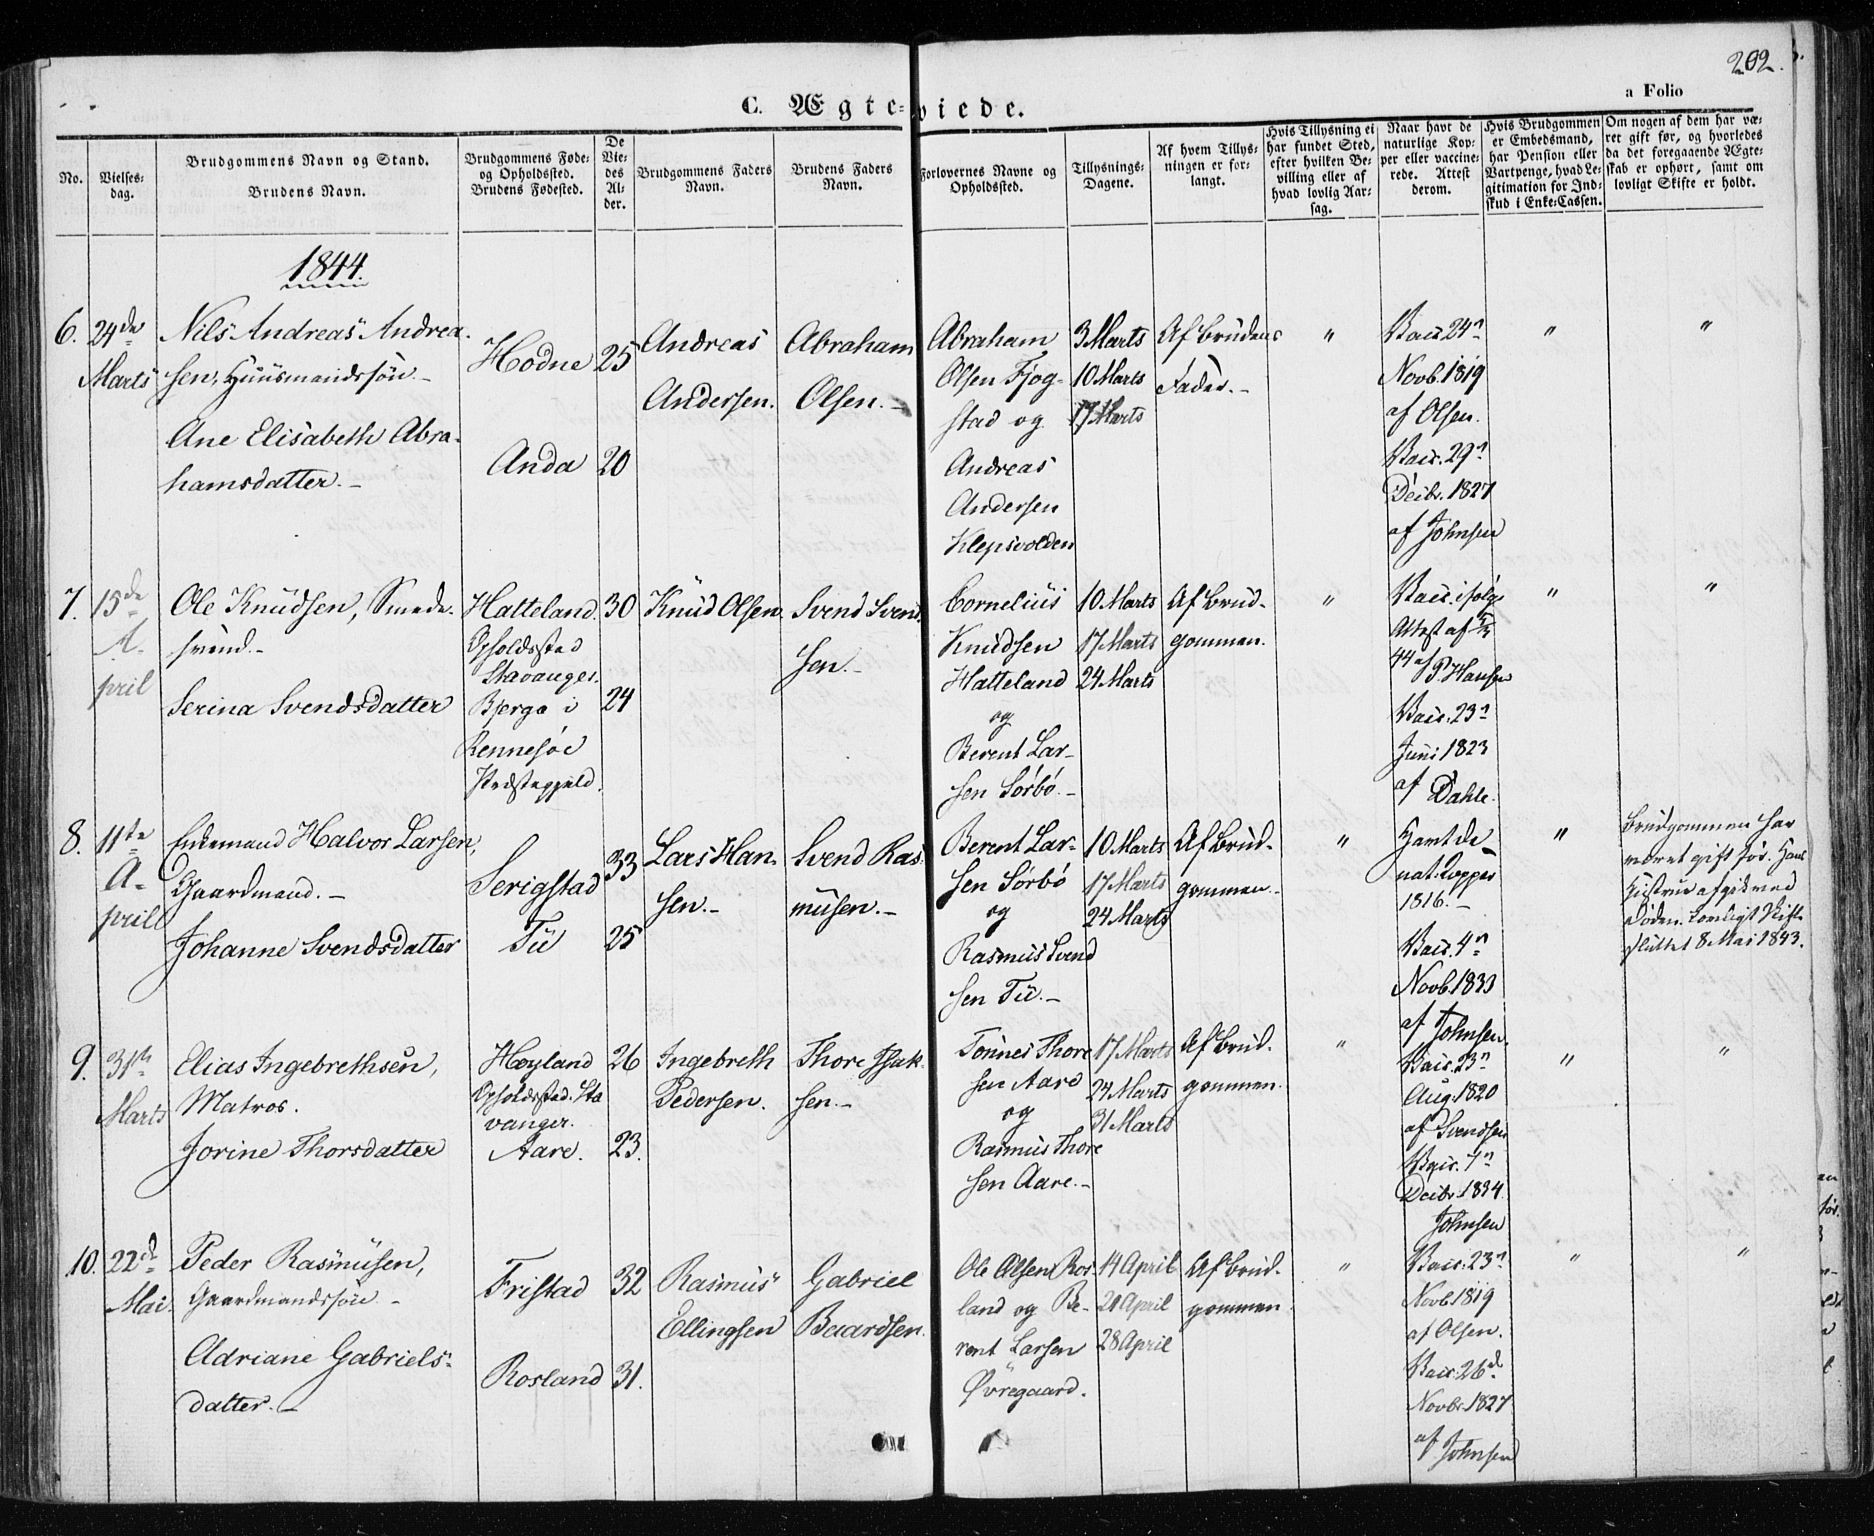 202.
a Folio
C. Ægte-viede.
No.
Vielses-
dag.
Brudgommens Navn og Stand.
Brudens Navn.
Brudgommens Føde-
og Opholdssted.
Brudens Fødested.
De
Vie-
des
Al-
der.
Brudgommens Faders
Navn.
Brudens Faders
Navn.
Forlovernes Navne og
Opholdssted.
Tillysnings-
Dagene.
Af hvem Tillys-
ningen er for-
langt.
Hvis Tillysning ei
har fundet Sted,
efter hvilken Be-
villing eller af
hvad lovlig Aar-
sag.
Naar havt de
naturlige Kop-
per eller vaccine-
rede. Attest
derom.
Hvis Brudgommen
er Embedsmand,
har Pension eller
Vartpenge, hvad Le-
gitimation for Ind-
skud i Enke-Cassen.
Om nogen af dem har væ-
ret gift før, og hvorledes
da det foregaaende Ægte-
skab er ophørt, samt om
lovligt Skifte er holdt.
1844.
6.
24de
Marts
Nils Andreas Andrea-
sen, Huusmandssøn.-
Ane Elisabeth Abra-
hamsdatter.-
Hodne
Anda
25
20
Andreas
Andersen.
Abraham
Olsen.-
Abraham
Olsen Fjog-
stad og
Andreas
Andersen
Klepsvolden
3 Marts
10 Marts
17 Marts
Af Brudens
Fader.-
"
Vacc. 24n
Novb. 1819
af Olsen.
Vacc. 29n
Decbr. 1827
af Johnsen
"
"
7.
15de
A-
pril
Ole Knudsen, Smede-
svend.-
Serina Svendsdatter
Hatteland.
Opholdssted
Stavanger.
Bjergo i
Rennesøe
Præstegjeld.
30
24
Knud Olsen.
Svend Svend-
sen.-
Cornelius
Knudsen
Hatteland
og
Berent Lar-
sen Sørbø.-
10 Marts
17 Marts
24 Marts
Af Brud-
gommen.
"
Vacc. ifølge
Attest af
44 af P. Hansen
Vacc. 23n
Juni 1823
af Dahle.
"
"
8.
11te
A-
pril
Enkemand Halvor Larsen,
Gaardmand.-
Johanne Svendsdatter
Serigstad
Tu
33
25
Lars Han-
sen.-
Svend Ras-
musen.-
Berent Lar-
sen Sørbø
og
Rasmus Svend
sen Tu.-
10 Marts
17 Marts
24 Marts
Af Brud-
gommen.-
"
Havt de
nat. Kopper
1816.-
Vacc. 4n
Novb. 1833
af Johnsen.
"
Brudgommen har
været gift før. Hans
Hustrue afgik ved
Døden. Lovligt Skifte
sluttet 8 Mai 1843.
9.
31te
Marts
Elias Ingebrethsen,
Matros.
Jorine Thorsdatter
Høyland
Opholdssted. Sta
vanger.
Aare.
26
23.
Ingebreth
Pedersen.
Thore Isak-
sen.-
Tønnes Thore
sen Aare
og
Rasmus Thore
sen Aare.-
17 Marts
24 Marts
31 Marts
Af Brud-
gommen.
"
Vacc. 23n
Aug. 1820
af Svendsen
Vacc. 7n
Decbr. 1834
Johnsen
"
"
10.
22d
Mai.
Peder Rasmusen,
Gaardmandssøn.-
Adriane Gabriels-
datter.-
Fristad
Rosland
32
31.
Rasmus
Ellingsen
Gabriel
Baardsen.
Ole Olsen Ros-
land og Be-
rent Larsen
Øvregaard.
14 April
21 April
28 April
Af Brud-
gommen.
"
Vacc. 23n
Novb. 1819
af Olsen.
Vacc. 26d
Novbr. 1827
af Johnsen
"
"